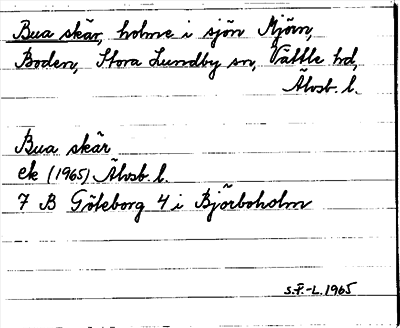 Bua skär, holme i sjön Mjörn,
Boden, Stora Lundby sn, Vättle hd,
Älvsb. l.
Bua skär
ek (1965) Älvsb. l.
7 B Göteborg 4 i Björboholm
S.F.-L. 1965